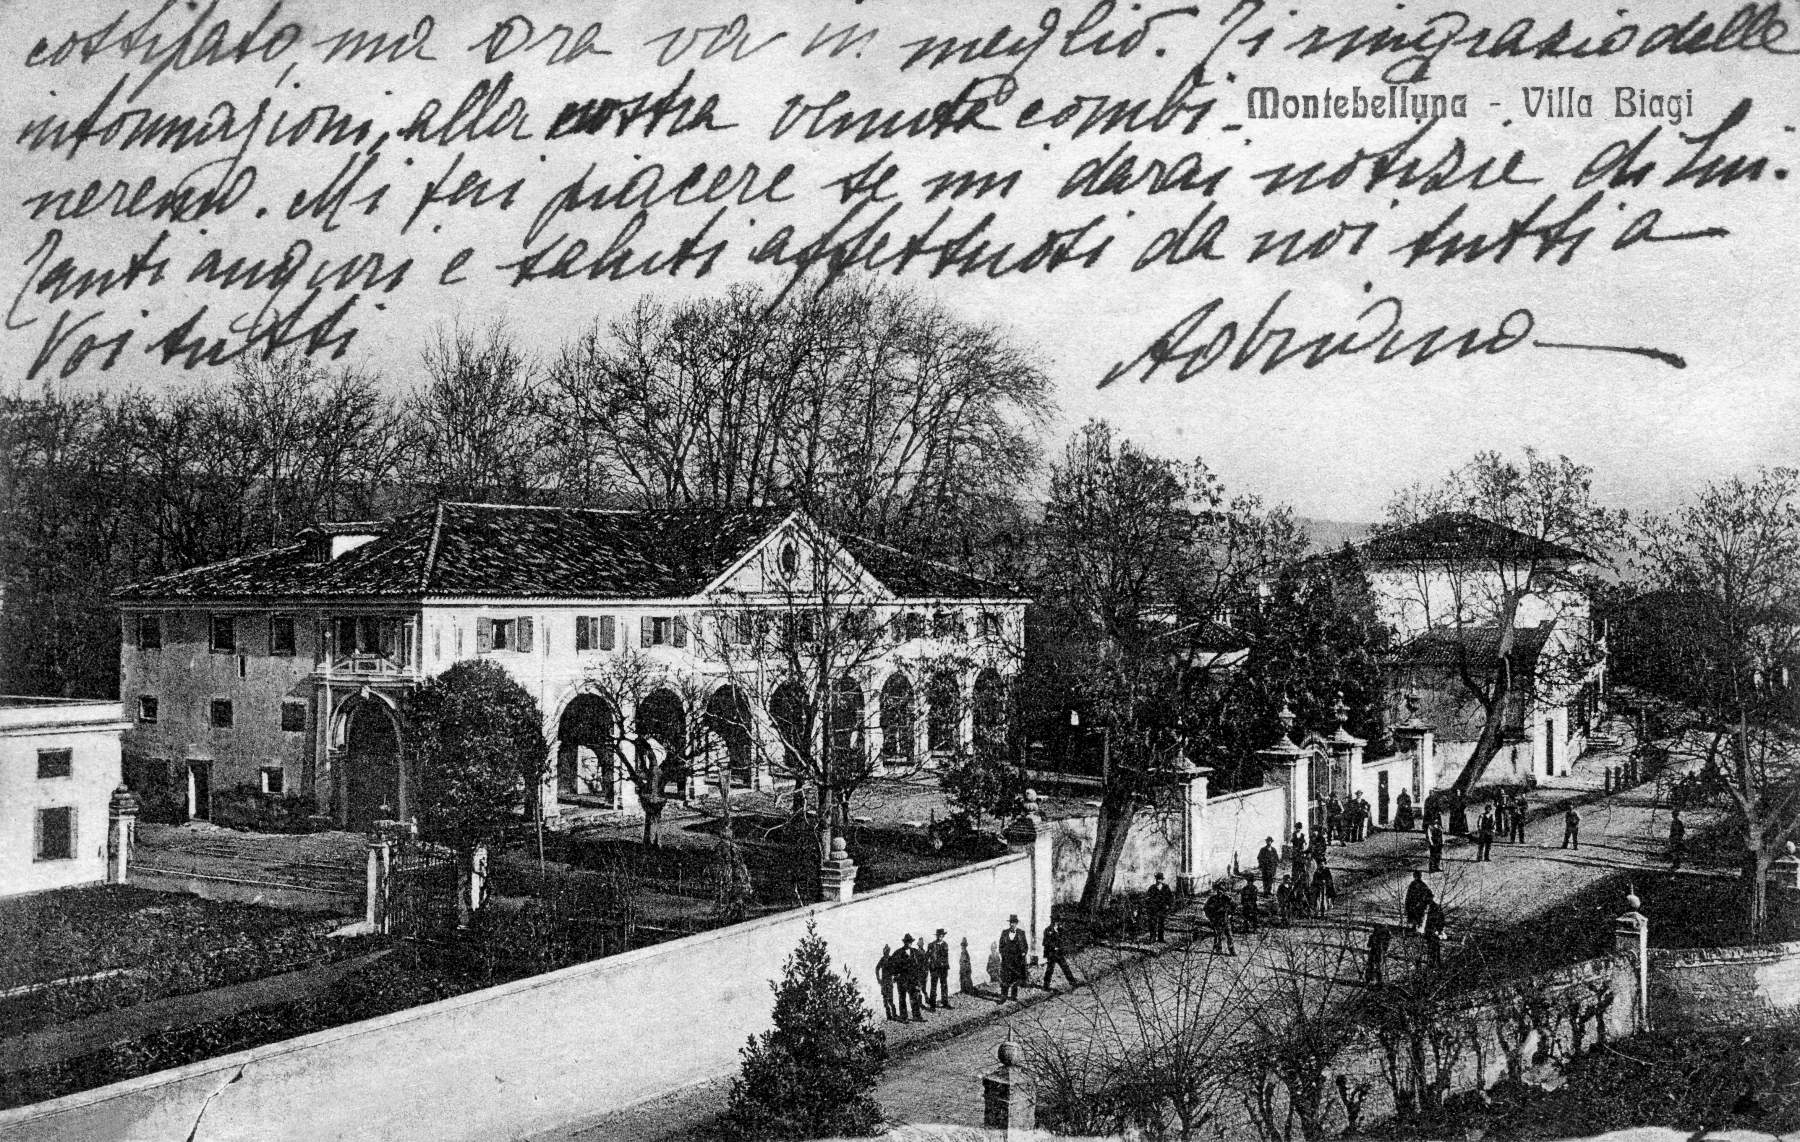 costipato, ma ora va in meglio. Ti ringrazio delle
informazioni, alla nostra venuta combi-
Montebelluna - Villa Biagi
neremo. Mi fai piacere se mi darai notizie di Lui.
Tanti auguri e saluti affettuosi da noi tutti a
Voi tutti